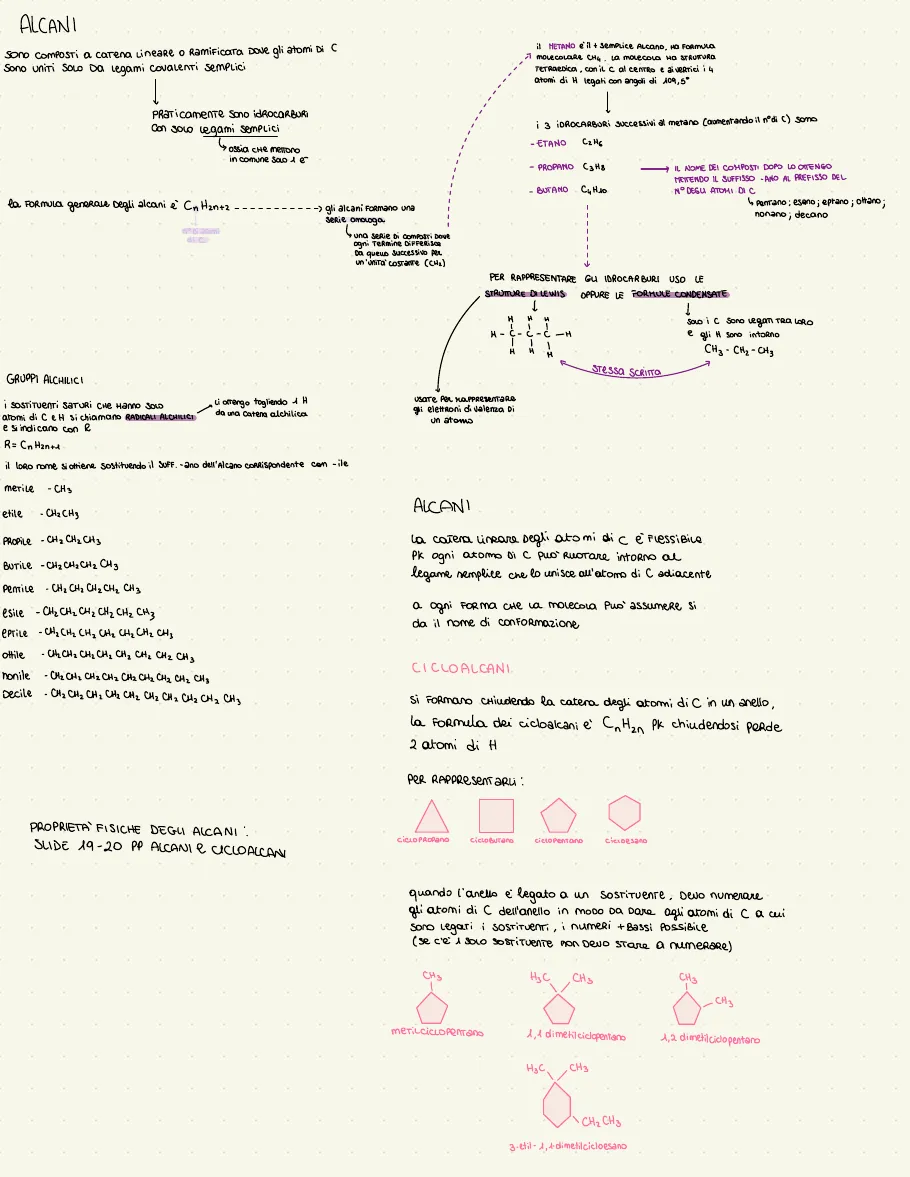 ALCANI
sono composti a catena lineare o ramificata dove gli atomi di C
sono uniti solo da legami covalenti semplici
praticamente sono idrocarburi
con solo legami semplici
ossia che mettono
in comune solo 1 e⁻
la formula generale degli alcani è CnH2n+2
gli alcani formano una
serie omologa
una serie di composti dove
ogni termine differisce
da quello successivo per
un'unità costante (CH₂)
il METANO è il + semplice alcano, ha formula
molecolare CH₄. La molecola ha struttura
tetraedica, con il C al centro e ai vertici i 4
atomi di H legati con angoli di 109,5°
i 3 idrocarburi successivi al metano (aumentando il n° di C) sono
- ETANO C₂H₆
- PROPANO C₃H₈
- BUTANO C₄H₁₀
IL NOME DEI COMPOSTI DOPO LO OTTENGO
METTENDO IL SUFFISSO -ANO AL PREFISSO DEL
N° DEGLI ATOMI DI C
pentano; esano; eptano; ottano;
nonano; decano
PER RAPPRESENTARE GLI IDROCARBURI USO LE
STRUTTURE DI LEWIS OPPURE LE FORMULE CONDENSATE
H H H
H - C - C - C - H
H H H
solo i C sono legati tra loro
e gli H sono intorno
CH₃ - CH₂ - CH₃
STESSA SCRITTA
usate per rappresentare
gli elettroni di valenza di
un atomo
GRUPPI ALCHILICI
i sostituenti saturi che hanno solo
atomi di C e H si chiamano RADICALI ALCHILICI
e si indicano con R
li ottengo togliendo 1 H
da una catena alchilica
R = CnH2n+1
il loro nome si ottiene sostituendo il suff. -ano dell'alcano corrispondente con -ile
metile - CH₃
etile - CH₂CH₃
propile - CH₂CH₂CH₃
butile - CH₂CH₂CH₂CH₃
pentile - CH₂CH₂CH₂CH₂CH₃
esile - CH₂CH₂CH₂CH₂CH₂CH₃
eptile - CH₂CH₂CH₂CH₂CH₂CH₂CH₃
ottile - CH₂CH₂CH₂CH₂CH₂CH₂CH₂CH₃
nonile - CH₂CH₂CH₂CH₂CH₂CH₂CH₂CH₂CH₃
decile - CH₂CH₂CH₂CH₂CH₂CH₂CH₂CH₂CH₂CH₃
PROPRIETÀ FISICHE DEGLI ALCANI:
SLIDE 19-20 PP ALCANI e CICLOALCANI
ALCANI
la catena lineare degli atomi di C è flessibile
pk ogni atomo di C può ruotare intorno al
legame semplice che lo unisce all'atomo di C adiacente
a ogni forma che la molecola può assumere si
da il nome di conformazione
CICLOALCANI
si formano chiudendo la catena degli atomi di C in un anello,
la formula dei cicloalcani è CnH2n pk chiudendosi perde
2 atomi di H
per rappresentarli:
ciclopropano ciclobutano ciclopentano cicloesano
quando l'anello è legato a un sostituente, devo numerare
gli atomi di C dell'anello in modo da dare agli atomi di C a cui
sono legati i sostituenti, i numeri + bassi possibile
(se c'è 1 solo sostituente non devo stare a numerare)
CH₃
metilciclopentano
H₃C CH₃
1,1 dimetilciclopentano
CH₃
CH₃
1,2 dimetilciclopentano
H₃C CH₃
CH₂CH₃
3-etil-1,1 dimetilcicloesano